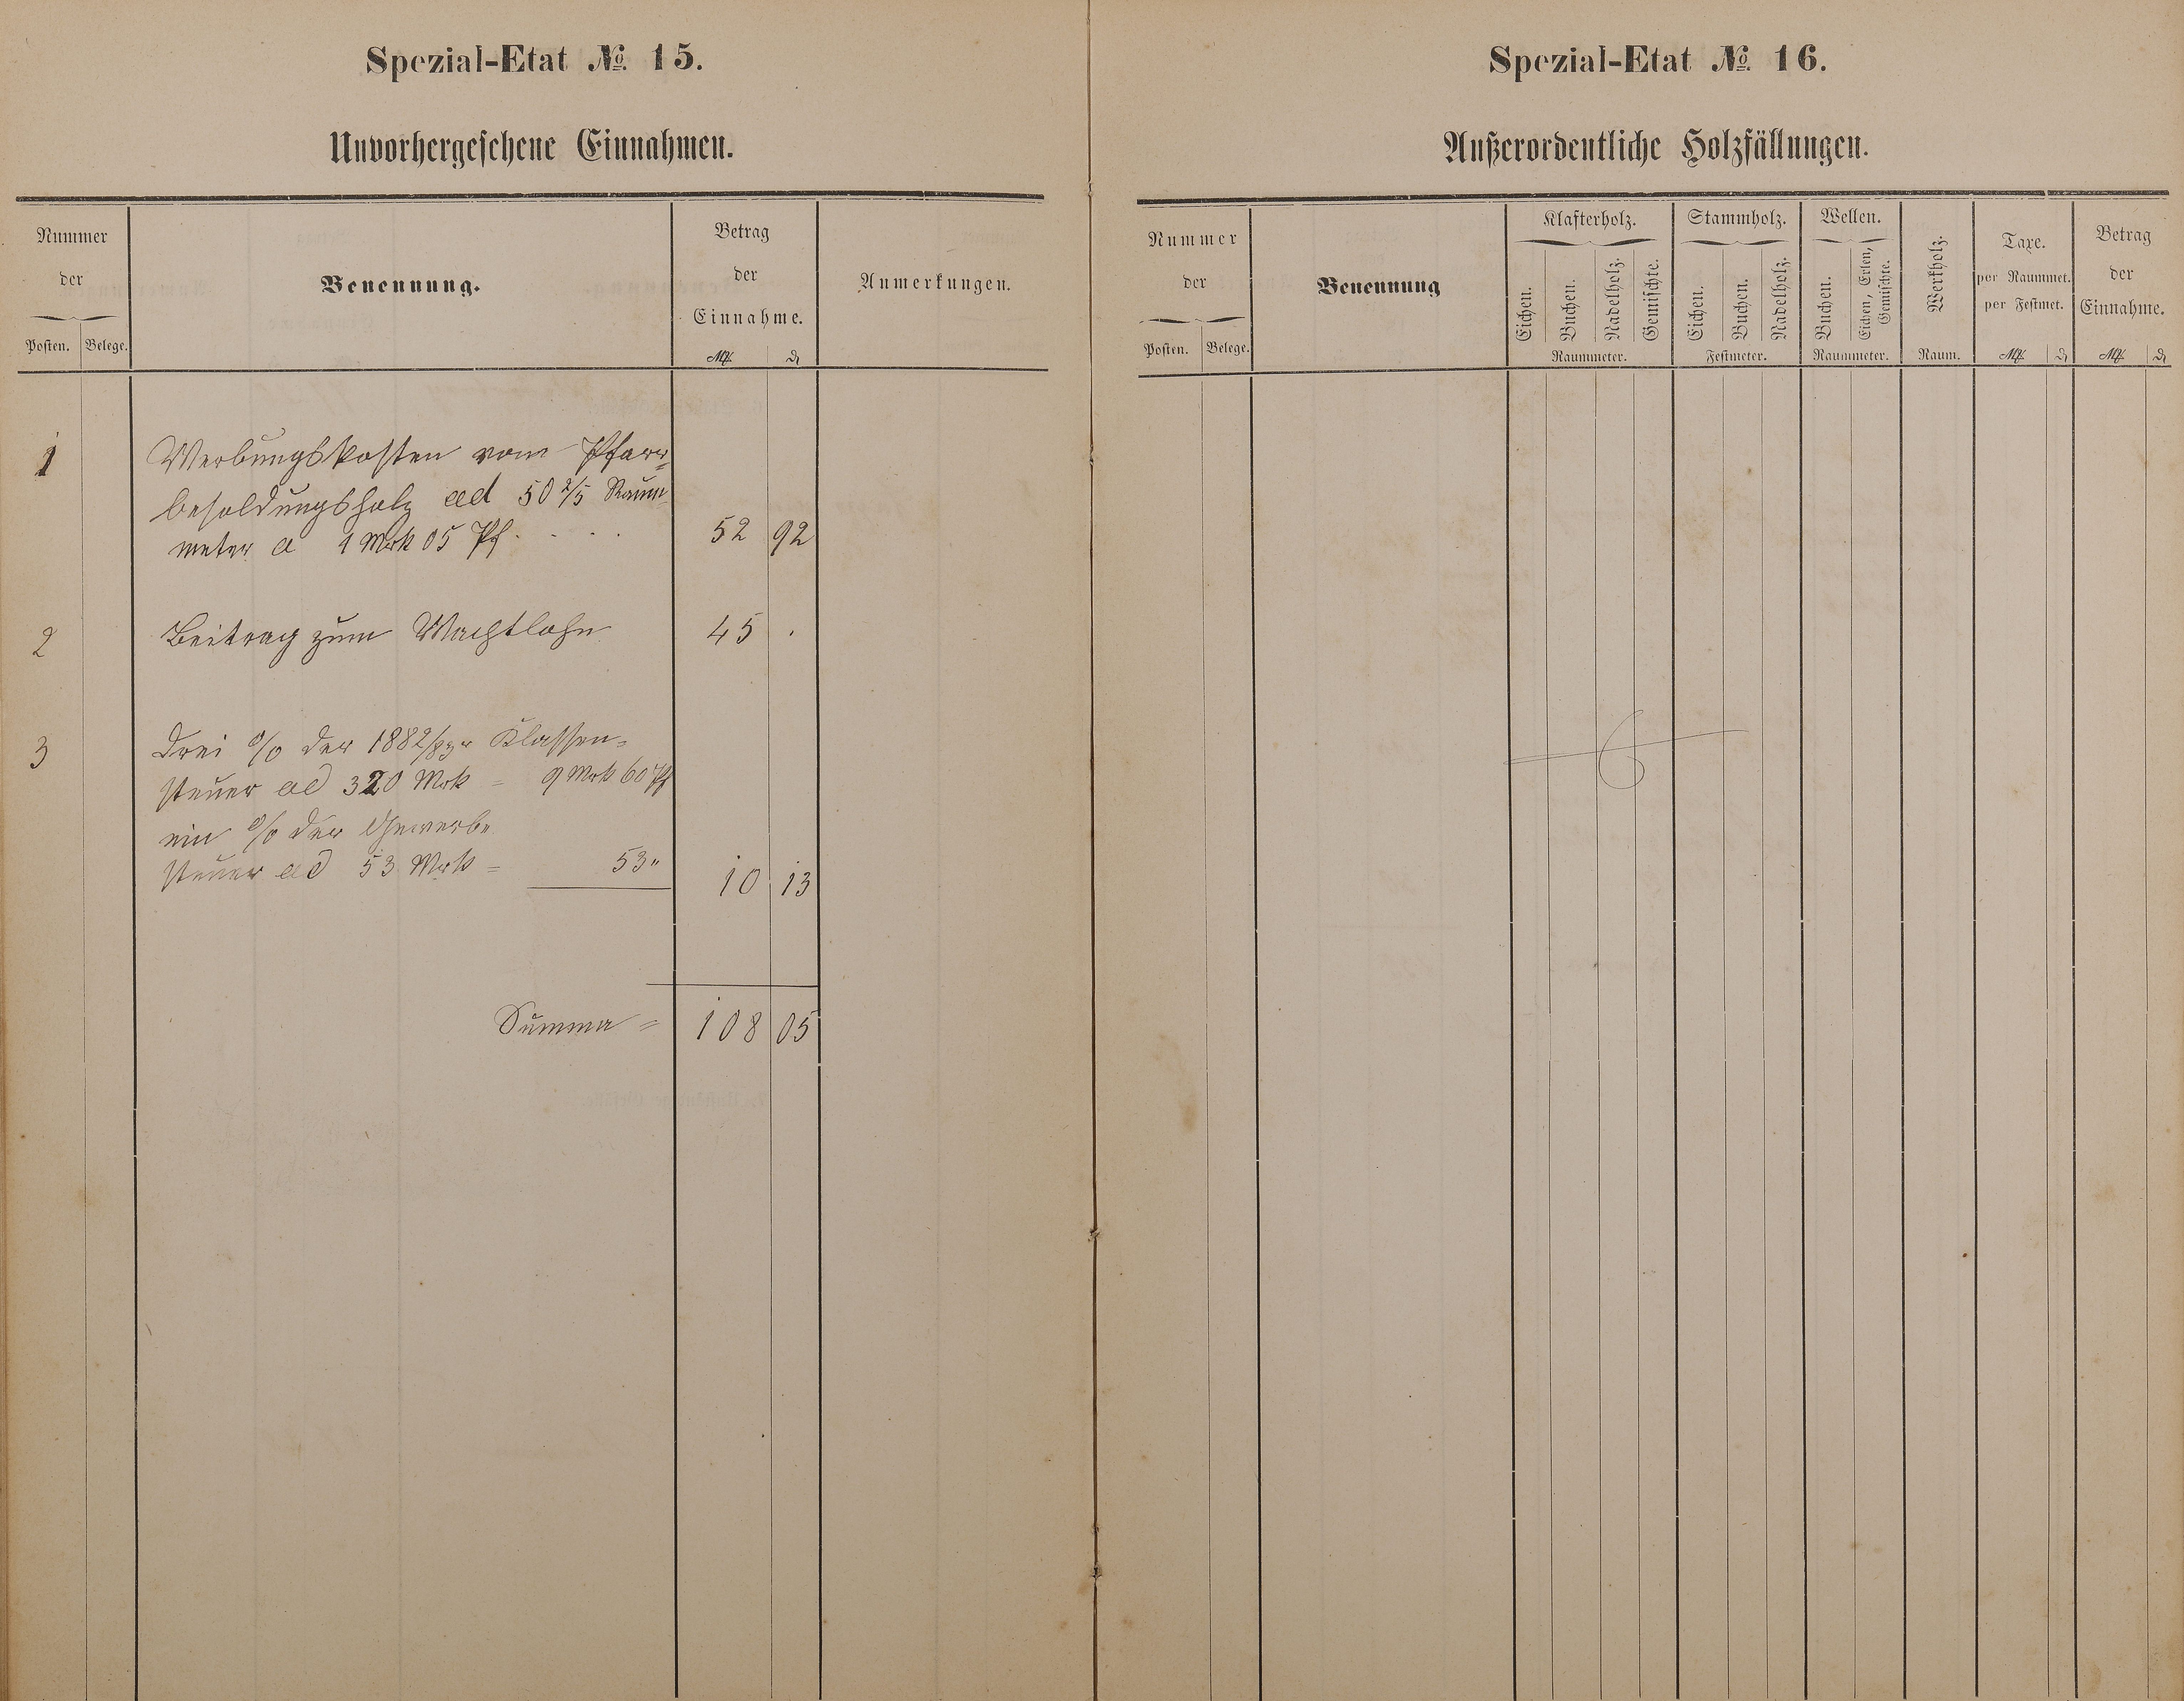 Spezial-Etat № 15.
Unvorhergesehene Einnahmen.
Nummer
der
Posten. Belege.
Benennung.
Betrag
der
Einnahme.
Mk. ₰
Anmerkungen.
1 Werbungskosten vom Pfarr-
besoldungsholz ad 50 2/5 Raum-
meter a 1 Mrk 05 Pf. . . . 52 92
2 Beitrag zum Wachtlohn 45 .
3 Drei % der 1882/83gr Klassen-
steuer ad 320 Mrk = 9 Mrk 60 Pf
ein % der Gewerbe
steuer ad 53 Mrk = 53 " 10 13
Summa = 108 05
Spezial-Etat № 16.
Außerordentliche Holzfällungen.
Nummer
der
Posten. Belege.
Benennung
Klafterholz.
Eichen. Buchen. Nadelholz. Gemischte.
Raummeter.
Stammholz.
Eichen. Buchen. Nadelholz.
Festmeter.
Wellen.
Buchen. Eichen, Erlen,
Gemischte.
Raummeter.
Werkholz.
Raum.
Taxe.
per Raummet.
per Festmet.
Mk. ₰
Betrag
der
Einnahme.
Mk. ₰